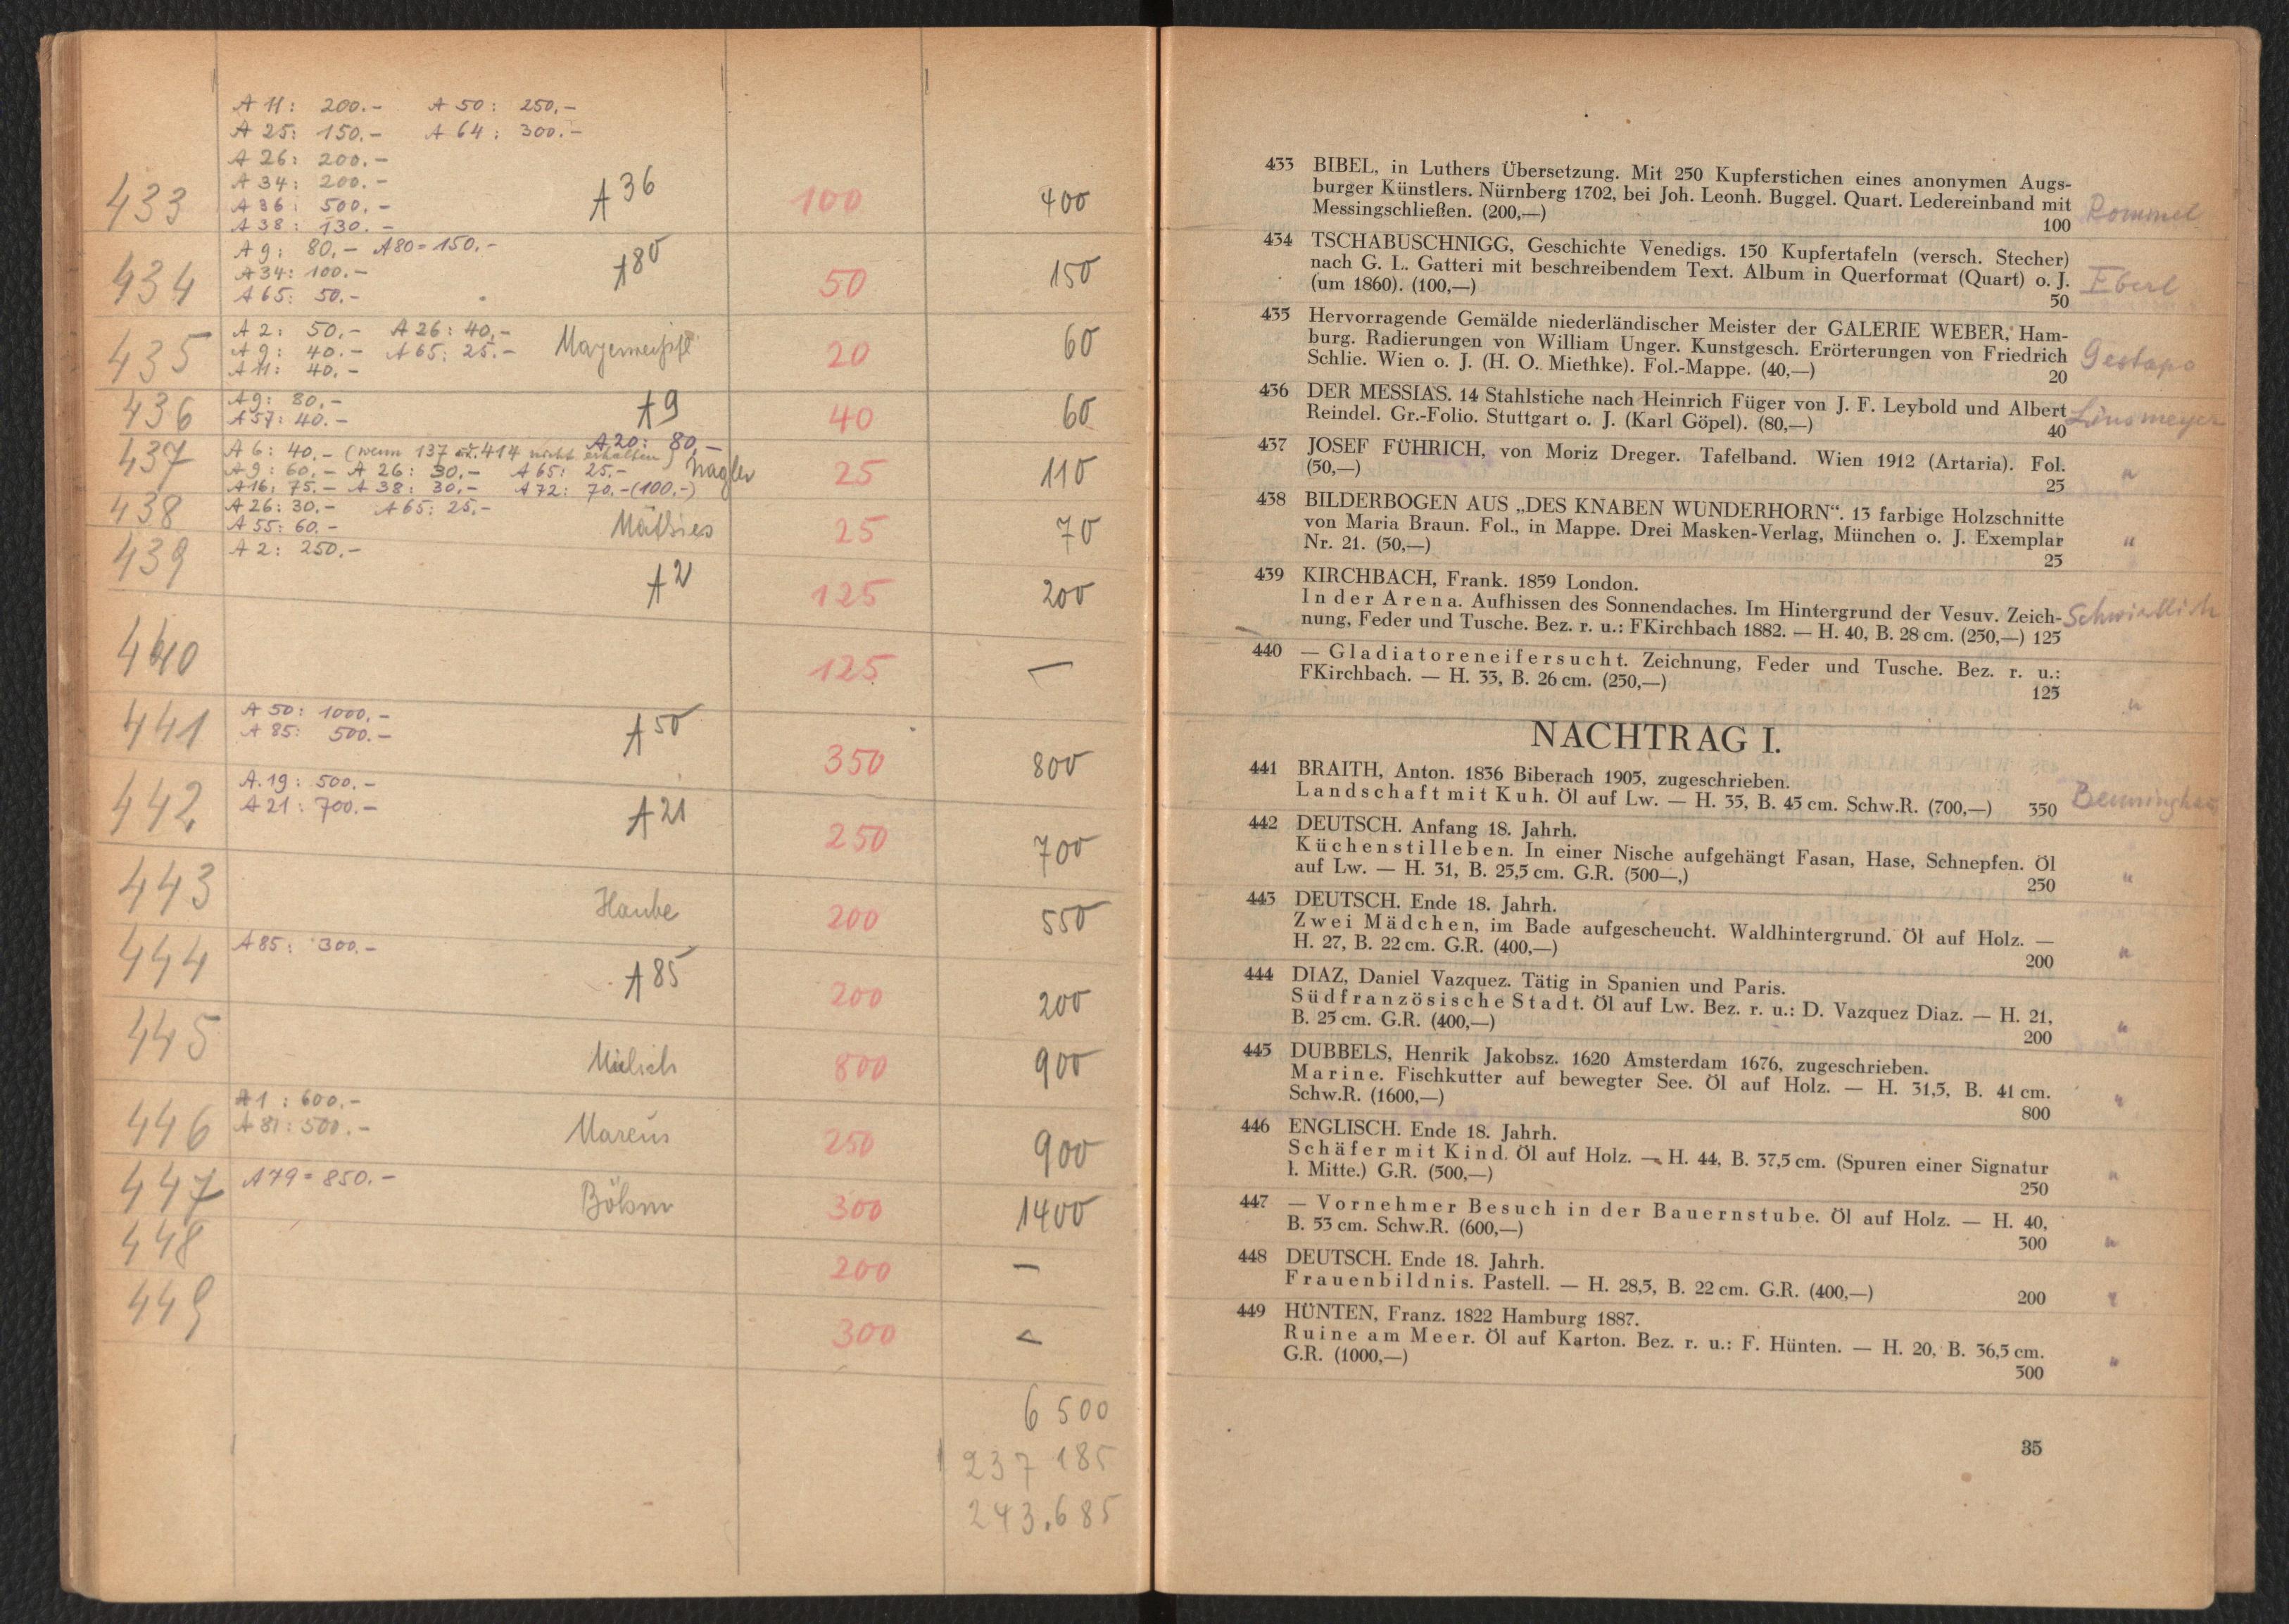 A 11: 200.- A 50: 250.-
A 25: 150.- A 64: 300.-
A 26: 200.-
A 34: 200.-
433 A 36: 500.- A 36 100 400
A 38: 130.-
A 9: 80.- A80=150.-
434 A 34: 100.- A 80 50 150
A 65: 50.-
A 2: 50.- A 26: 40.-
435 A 9: 40.- A 65: 25.- 20 60
A 11: 40.-
436 A 9: 80.- A 9 40 60
A 57: 40.-
A 20: 80.-
437 A 6: 40.- (wenn 137 od. 414 nicht erhalten) Nagler 25 110
A 9: 60.- A 26: 30.- A 65: 25.-
A 16: 75.- A 38: 30.- A 72: 70.-(100.-)
438 A 26: 30.- A 65: 25.- Mathies 25 70
A 55: 60.-
439 A 2: 250.- A 2 125 200
440 125 —
441 A 50: 1000.- A 50 350 800
A 85: 500.-
442 A. 19: 500.- A 21 250 700
A 21: 700.-
443 Haube 200 550
444 A 85: 300.- A 85 200 200
445 Milich 800 900
A 1: 600.-
446 A 81: 500.- Marcus 250 900
447 A79=850.- Böhm 300 1400
448 200 —
449 300 —
6 500
237 185
243.685
433 BIBEL, in Luthers Übersetzung. Mit 250 Kupferstichen eines anonymen Augs-
burger Künstlers. Nürnberg 1702, bei Joh. Leonh. Buggel. Quart. Ledereinband mit
Messingschließen. (200,—) 100 Rommel
434 TSCHABUSCHNIGG, Geschichte Venedigs. 150 Kupfertafeln (versch. Stecher)
nach G. L. Gatteri mit beschreibendem Text. Album in Querformat (Quart) o. J.
(um 1860). (100,—) 50 Eberl
435 Hervorragende Gemälde niederländischer Meister der GALERIE WEBER, Ham-
burg. Radierungen von William Unger. Kunstgesch. Erörterungen von Friedrich
Schlie. Wien o. J. (H. O. Miethke). Fol.-Mappe. (40,—) 20 Gestapo
436 DER MESSIAS. 14 Stahlstiche nach Heinrich Füger von J. F. Leybold und Albert
Reindel. Gr.-Folio. Stuttgart o. J. (Karl Göpel). (80,—) 40 Linsmeyer
437 JOSEF FÜHRICH, von Moriz Dreger. Tafelband. Wien 1912 (Artaria). Fol.
(50,—) 25 "
438 BILDERBOGEN AUS „DES KNABEN WUNDERHORN“. 13 farbige Holzschnitte
von Maria Braun. Fol., in Mappe. Drei Masken-Verlag, München o. J. Exemplar
Nr. 21. (50,—) 25 "
439 KIRCHBACH, Frank. 1859 London.
In der Arena. Aufhissen des Sonnendaches. Im Hintergrund der Vesuv. Zeich-
nung, Feder und Tusche. Bez. r. u.: FKirchbach 1882. — H. 40, B. 28 cm. (250,—) 125
440 — Gladiatoreneifersucht. Zeichnung, Feder und Tusche. Bez. r. u.:
FKirchbach. — H. 33, B. 26 cm. (250,—) 125 "
NACHTRAG I.
441 BRAITH, Anton. 1836 Biberach 1905, zugeschrieben.
Landschaft mit Kuh. Öl auf Lw. — H. 35, B. 45 cm. Schw.R. (700,—) 350
442 DEUTSCH. Anfang 18. Jahrh.
Küchenstilleben. In einer Nische aufgehängt Fasan, Hase, Schnepfen. Öl
auf Lw. — H. 31, B. 25,5 cm. G.R. (500—,) 250 "
443 DEUTSCH. Ende 18. Jahrh.
Zwei Mädchen, im Bade aufgescheucht. Waldhintergrund. Öl auf Holz. —
H. 27, B. 22 cm. G.R. (400,—) 200 "
444 DIAZ, Daniel Vazquez. Tätig in Spanien und Paris.
Südfranzösische Stadt. Öl auf Lw. Bez. r. u.: D. Vazquez Diaz. — H. 21,
B. 25 cm. G.R. (400,—) 200 "
445 DUBBELS, Henrik Jakobsz. 1620 Amsterdam 1676, zugeschrieben.
Marine. Fischkutter auf bewegter See. Öl auf Holz. — H. 31,5, B. 41 cm.
Schw.R. (1600,—) 800 "
446 ENGLISCH. Ende 18. Jahrh.
Schäfer mit Kind. Öl auf Holz. — H. 44, B. 37,5 cm. (Spuren einer Signatur
l. Mitte.) G.R. (500,—) 250 "
447 — Vornehmer Besuch in der Bauernstube. Öl auf Holz. — H. 40,
B. 53 cm. Schw.R. (600,—) 300 "
448 DEUTSCH. Ende 18. Jahrh.
Frauenbildnis. Pastell. — H. 28,5, B. 22 cm. G.R. (400,—) 200 "
449 HÜNTEN, Franz. 1822 Hamburg 1887.
Ruine am Meer. Öl auf Karton. Bez. r. u.: F. Hünten. — H. 20, B. 36,5 cm.
G.R. (1000,—) 300 "
35